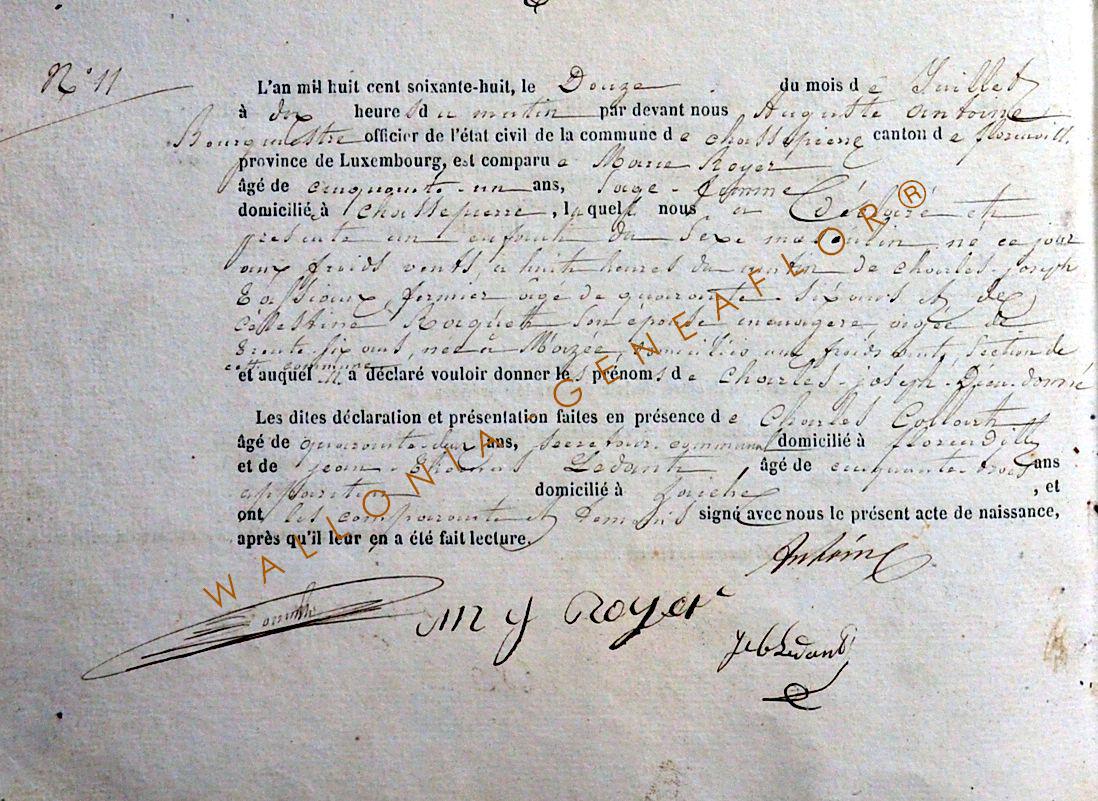 N° 11
L'an mil huit cent soixante-huit, le Douze du mois de Juillet
à dix heures du matin par devant nous Auguste Antoine
Bourgmestre officier de l'état civil de la commune de Chassepierre canton de florenville
province de Luxembourg, est comparue Marie Royer
âgé de cinquante-un ans, Sage-femme
domiciliée à Chassepierre, laquelle nous a Déclaré et
présenté un enfant du sexe masculin, né ce jour
aux froids vents, à huit heures du matin de Charles-joseph
fermier âgé de quarante six ans et de
Célestine son épouse ménagère, âgée de
trente six ans, née à Muzée, domiciliés aux froids vents, section de
cette commune
et auquel il a déclaré vouloir donner les prénoms de Charles-joseph-Dieu-donné
Les dites déclaration et présentation faites en présence de Charles Collart
âgé de quarante-deux ans, secrétaire communal domicilié à florenville
et de jean Ledant, âgé de cinquante-trois ans
appariteur domicilié à Laiche, et
ont les comparante et témoins signé avec nous le présent acte de naissance,
après qu'il leur en a été fait lecture.
Antoine
M J Royer
Ledant
WALLONIA - GENEAFLOR®